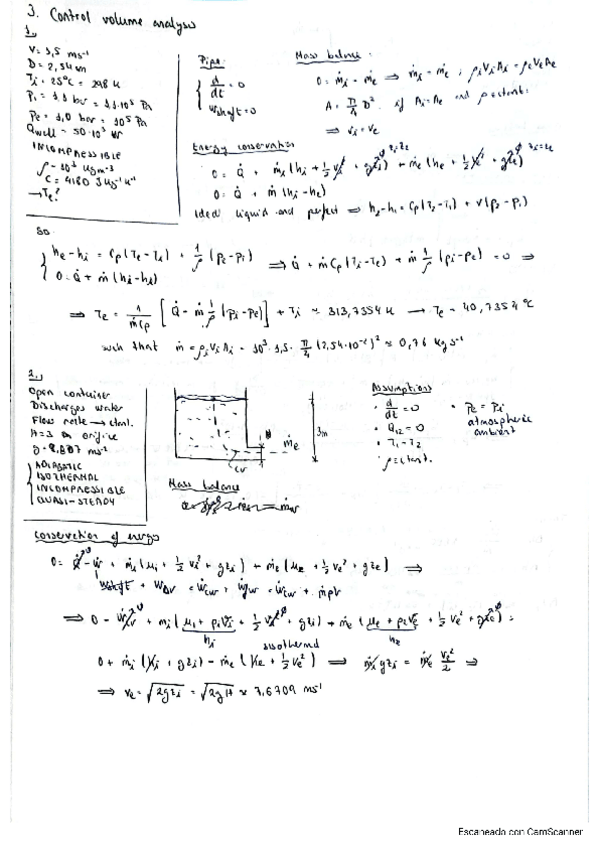 3. Control volume analysis
1.
V = 1,5 ms⁻¹
D = 2,54 cm
Ti = 25°C = 298 K
Pi = 1,1 bar = 1,1·10⁵ Pa
Pe = 1,0 bar = 10⁵ Pa
Qwall = 50·10³ W
INCOMPRESSIBLE
ρ = 10³ kg m⁻³
C = 4180 J kg⁻¹ K⁻¹
→ Te?
Pipe:
d/dt = 0
Wshaft = 0
Mass balance:
0 = ṁi - ṁe ⇒ ṁi = ṁe ; ρi Vi Ai = ρe Ve Ae
A = π/4 D² if Ai = Ae and ρ constant:
⇒ vi = ve
Energy conservation zi=ze
0 = Q̇ + ṁi (hi + 1/2 vi² + gzi) + ṁe (he + 1/2 ve² + gze) zi=ze
0 = Q̇ + ṁ (hi - he)
Ideal liquid and perfect ⇒ h2 - h1 = Cp (T2 - T1) + v (p2 - p1)
So
he - hi = Cp (Te - Ti) + 1/ρ (pe - pi)
0 = Q̇ + ṁ (hi - he)
⇒ Q̇ + ṁ Cp (Ti - Te) + ṁ 1/ρ (pi - pe) = 0 ⇒
⇒ Te = 1/(ṁ Cp) [Q̇ - ṁ 1/ρ (pi - pe)] + Ti ≈ 313,7354 K → Te = 40,7354 °C
such that ṁ = ρi Vi Ai = 10³·1,5· π/4 (2,54·10⁻²)² ≈ 0,76 kg s⁻¹
2.
Open container
Discharges water
Flow rate → const.
H = 3 m orifice
g = 9,807 ms⁻²
ADIABATIC
ISOTHERMAL
INCOMPRESSIBLE
QUASI-STEADY
3m
ṁe
CV
Assumptions
· d/dt = 0
· Q12 = 0
· T1 = T2
· ρ = const.
· pe = pi
atmospheric
ambient
Mass balance
Conservation of energy
0 = Q̇ - Ẇ + ṁi (μi + 1/2 vi² + gzi) + ṁe (μe + 1/2 ve² + gze) ⇒
ṁpv
⇒ 0 - Ẇ + ṁi (μi + pi vi + 1/2 vi² + gzi) + ṁe (μe + pe ve + 1/2 ve² + gze) =
hi
he
isothermal
0 + ṁi (hi + gzi) - ṁe (he + 1/2 ve²) ⇒ ṁi gzi = ṁe ve²/2 ⇒
⇒ ve = √2gzi = √2gH ≈ 7,6709 ms⁻¹
Escaneado con CamScanner